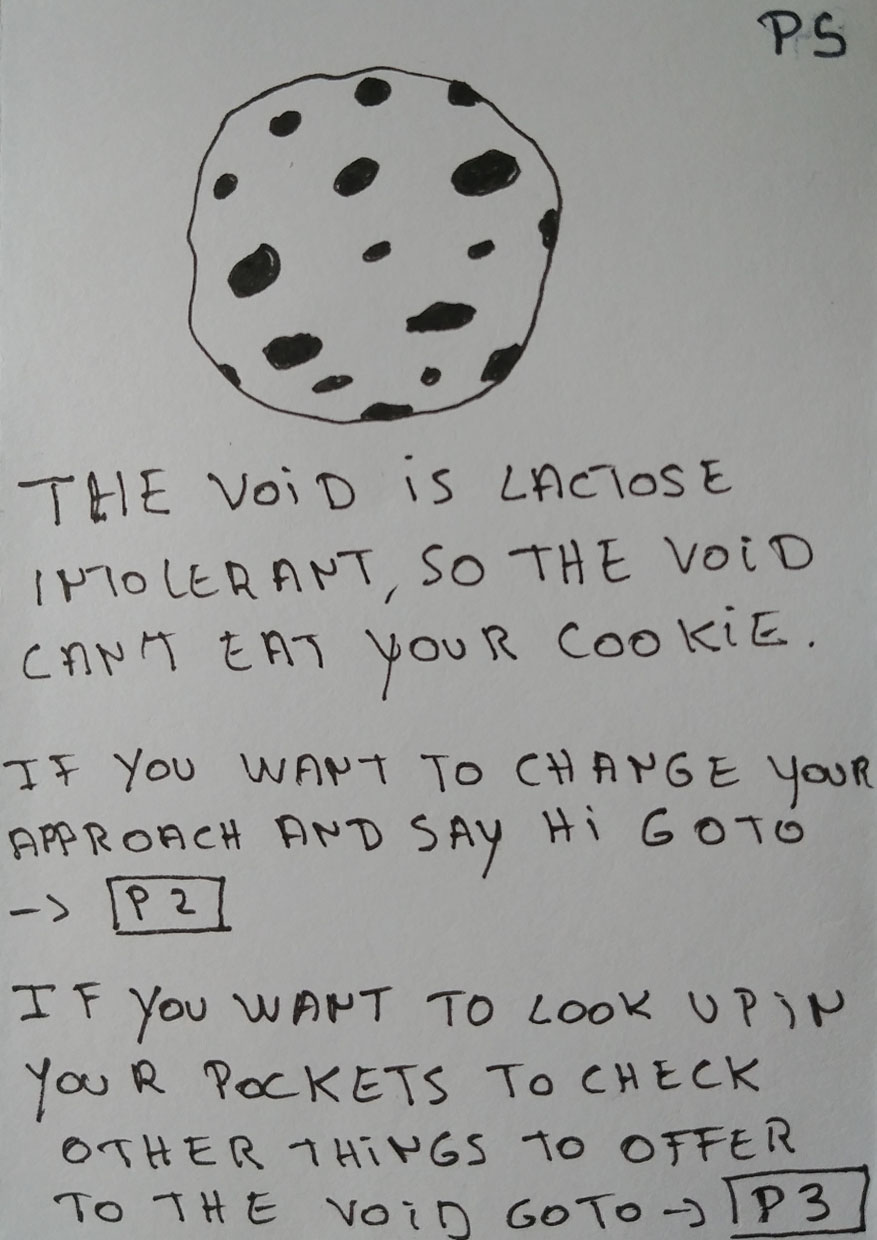 P5
THE VOID IS LACTOSE
INTOLERANT, SO THE VOID
CAN'T EAT YOUR COOKIE.
IF YOU WANT TO CHANGE YOUR
APPROACH AND SAY HI GOTO
-> P2
IF YOU WANT TO LOOK UP IN
YOUR POCKETS TO CHECK
OTHER THINGS TO OFFER
TO THE VOID GOTO -> P3